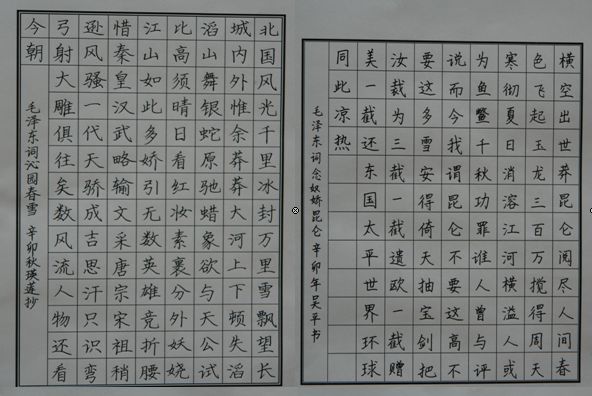 北国风光千里冰封万里雪飘望长
城内外惟余莽莽大河上下顿失滔
滔山舞银蛇原驰蜡象欲与天公试
比高须晴日看红妆素裹分外妖娆
江山如此多娇引无数英雄竞折腰
惜秦皇汉武略输文采唐宗宋祖稍
逊风骚一代天骄成吉思汗只识弯
弓射大雕俱往矣数风流人物还看
今朝
毛泽东词沁园春雪 辛卯秋瑛莲抄
横空出世莽昆仑阅尽人间春
色飞起玉龙三百万搅得周天
寒彻夏日消溶江河横溢人或
为鱼鳖千秋功罪谁人曾与评
说而今我谓昆仑不要这高不
要这多雪安得倚天抽宝剑把
汝裁为三截一截遗欧一截赠
美一截还东国太平世界环球
同此凉热
毛泽东词念奴娇昆仑 辛卯年吴平书